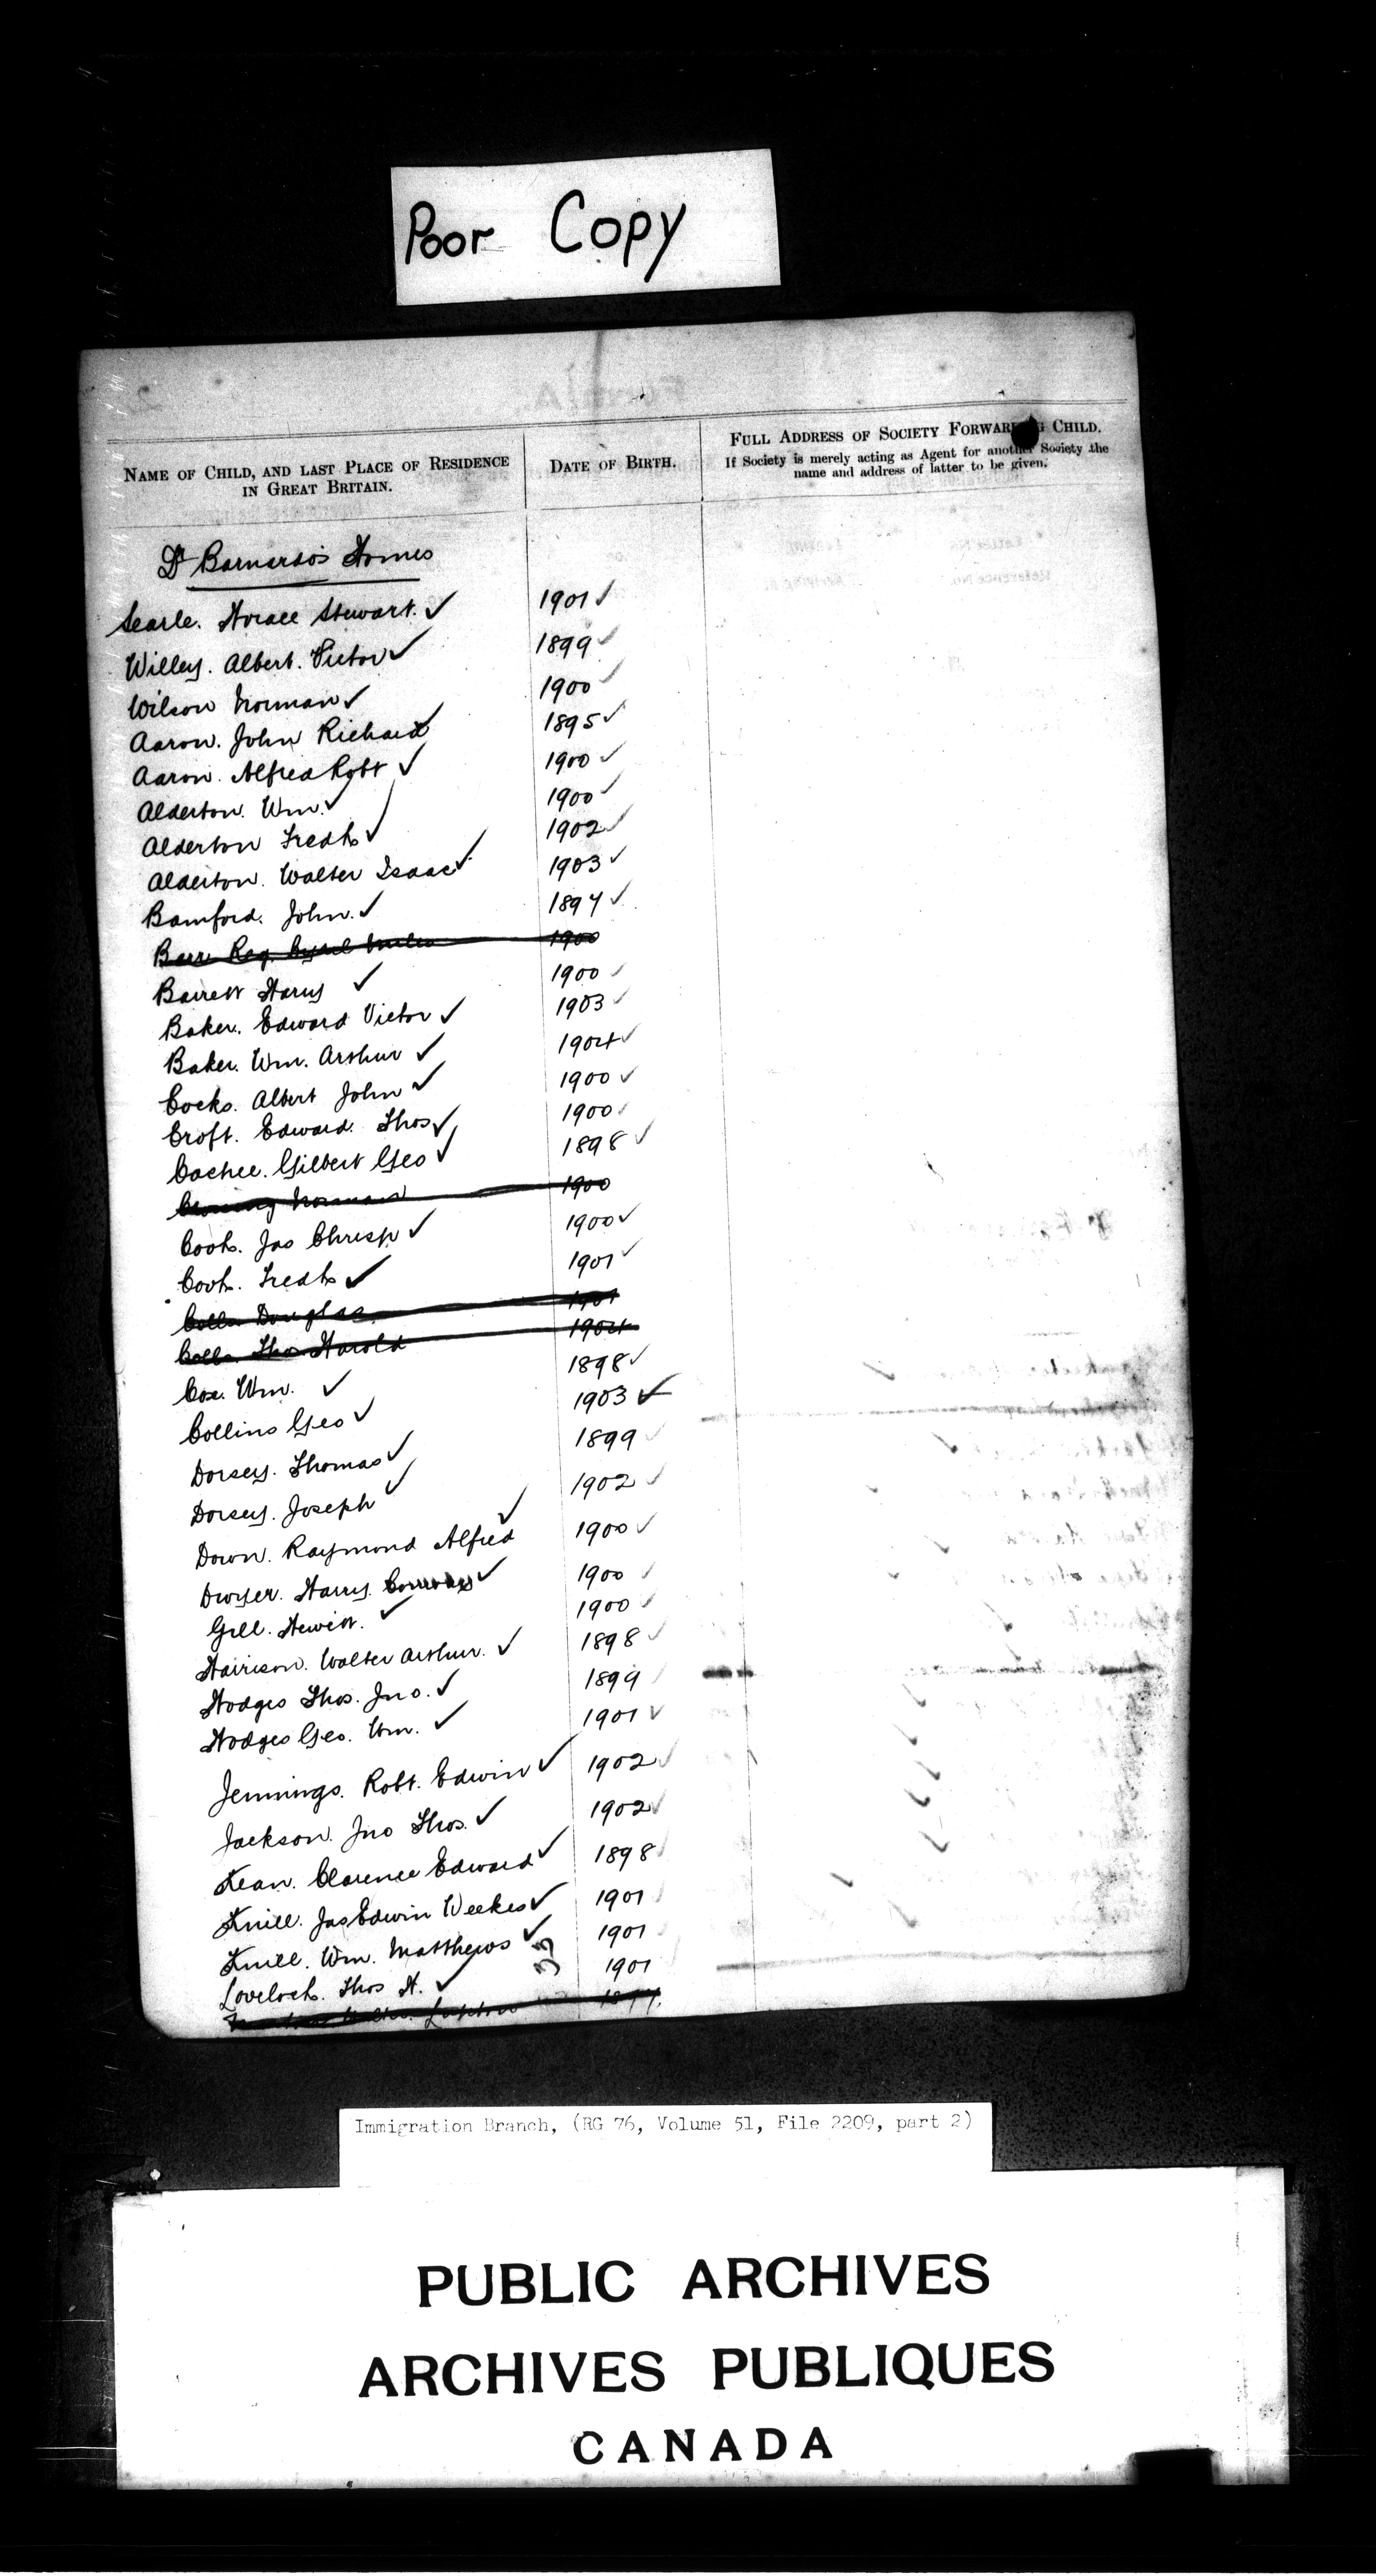 Poor Copy
NAME OF CHILD, AND LAST PLACE OF RESIDENCE
IN GREAT BRITAIN.
DATE OF BIRTH.
FULL ADDRESS OF SOCIETY FORWARDING CHILD.
If Society is merely acting as Agent for another Society the
name and address of latter to be given.
Dr Barnardo's Homes
Searle. Horace Stewart. ✓ 1901 ✓
Willey. Albert. Victor ✓ 1899 ✓
Wilson Norman ✓ 1900 ✓
Aaron. John Richard ✓ 1895 ✓
Aaron. Alfred Robt ✓ 1900 ✓
Alderton. Wm. ✓ 1900 ✓
Alderton Fredk ✓ 1902 ✓
Alderton. Walter Isaac ✓ 1903 ✓
Bamford. John. ✓ 1897 ✓
Barr Reg. 1900
Barrett Harry ✓ 1900 ✓
Baker. Edward Victor ✓ 1903 ✓
Baker. Wm. Arthur ✓ 1904 ✓
Cocks. Albert John ✓ 1900 ✓
Croft. Edward. Thos ✓ 1900 ✓
Cachee. Gilbert Geo ✓ 1898 ✓
Norman 1900
Cook. Jas Chrisp ✓ 1900 ✓
Cook. Fredk ✓ 1901 ✓
Douglas 1901
Thos Harold 1904
Cox. Wm. ✓ 1898 ✓
Collins Geo ✓ 1903 ✓
Dorsey. Thomas ✓ 1899 ✓
Dorsey. Joseph ✓ 1902 ✓
Down. Raymond Alfred ✓ 1900 ✓
Dwyer. Harry. ✓ 1900 ✓
Gill. Hewitt. ✓ 1900 ✓
Harrison. Walter Arthur. ✓ 1898 ✓
Hodges Thos. Jno. ✓ 1899 ✓
Hodges Geo. Wm. ✓ 1901 ✓
Jennings. Robt. Edwin ✓ 1902 ✓
Jackson. Jno Thos. ✓ 1902 ✓
Kean. Clarence Edward ✓ 1898 ✓
Knill. Jas Edwin Weekes ✓ 1901 ✓
Knill. Wm. Matthews ✓ 1901
33
Lovelock. Thos H. ✓ 1901
Immigration Branch, (RG 76, Volume 51, File 2209, part 2)
PUBLIC ARCHIVES
ARCHIVES PUBLIQUES
CANADA